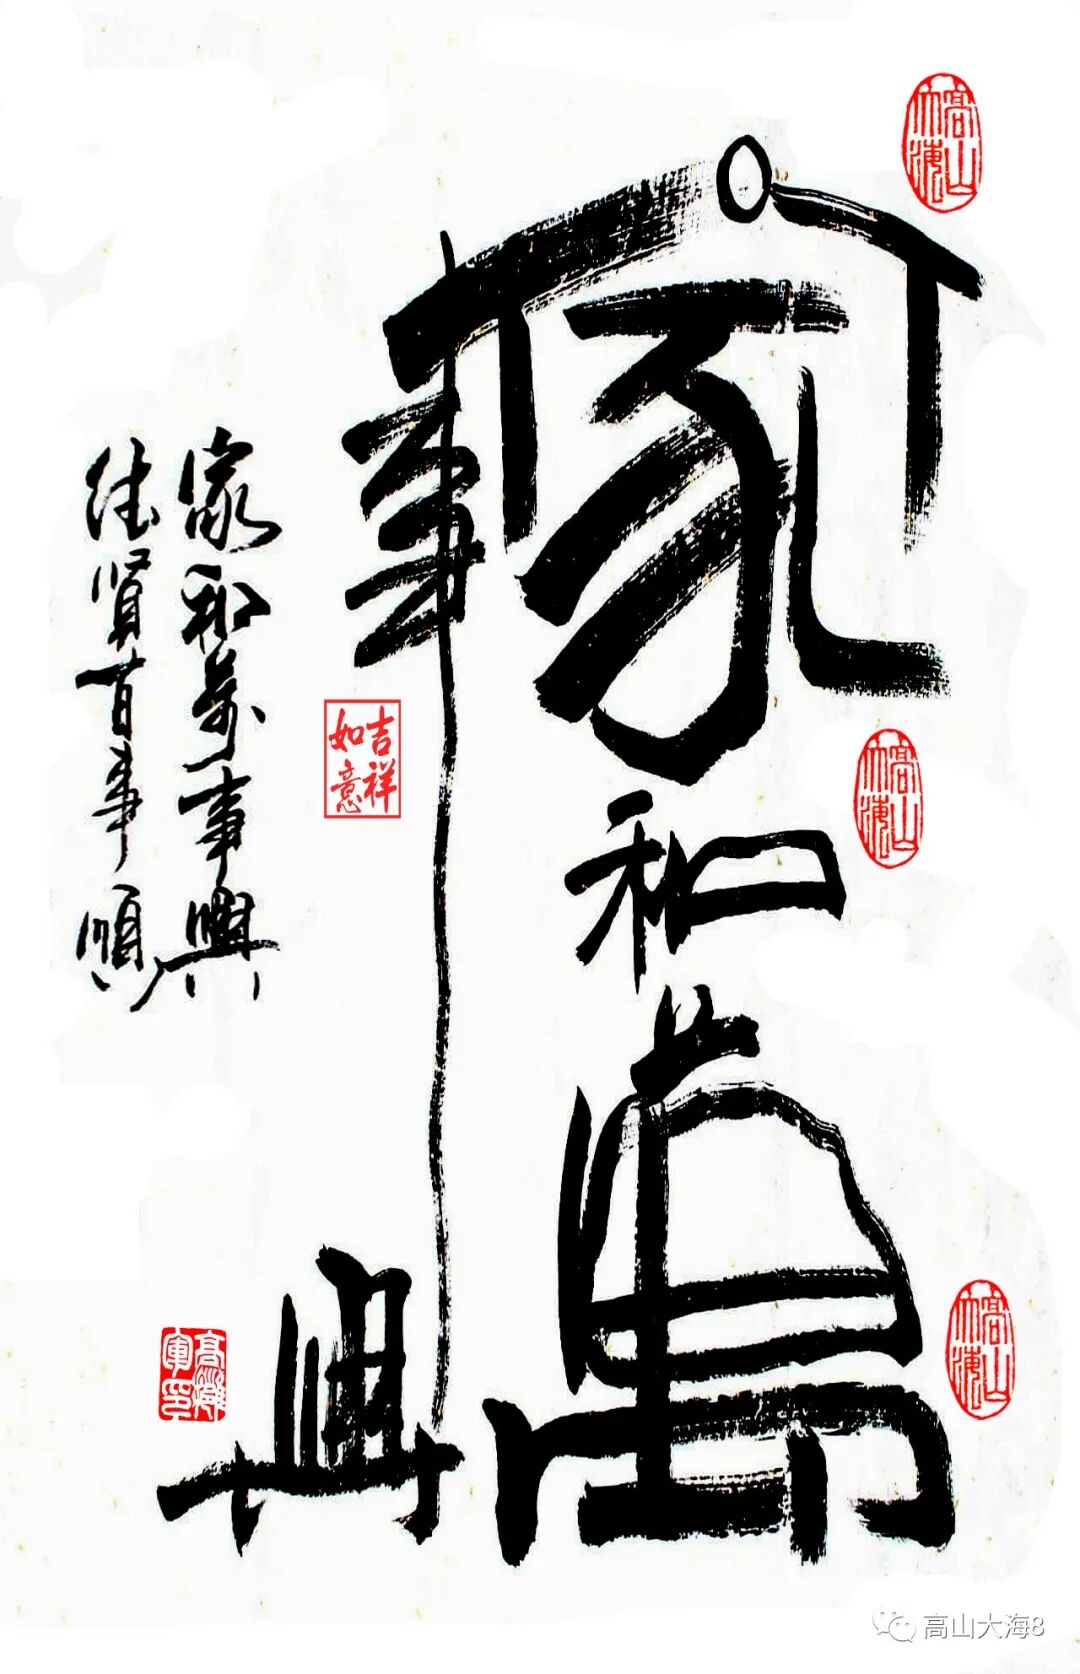 高山大海
家和萬
高山大海
高山大海
事興
吉祥如意
家和萬事興
賢百事順
高山大海8